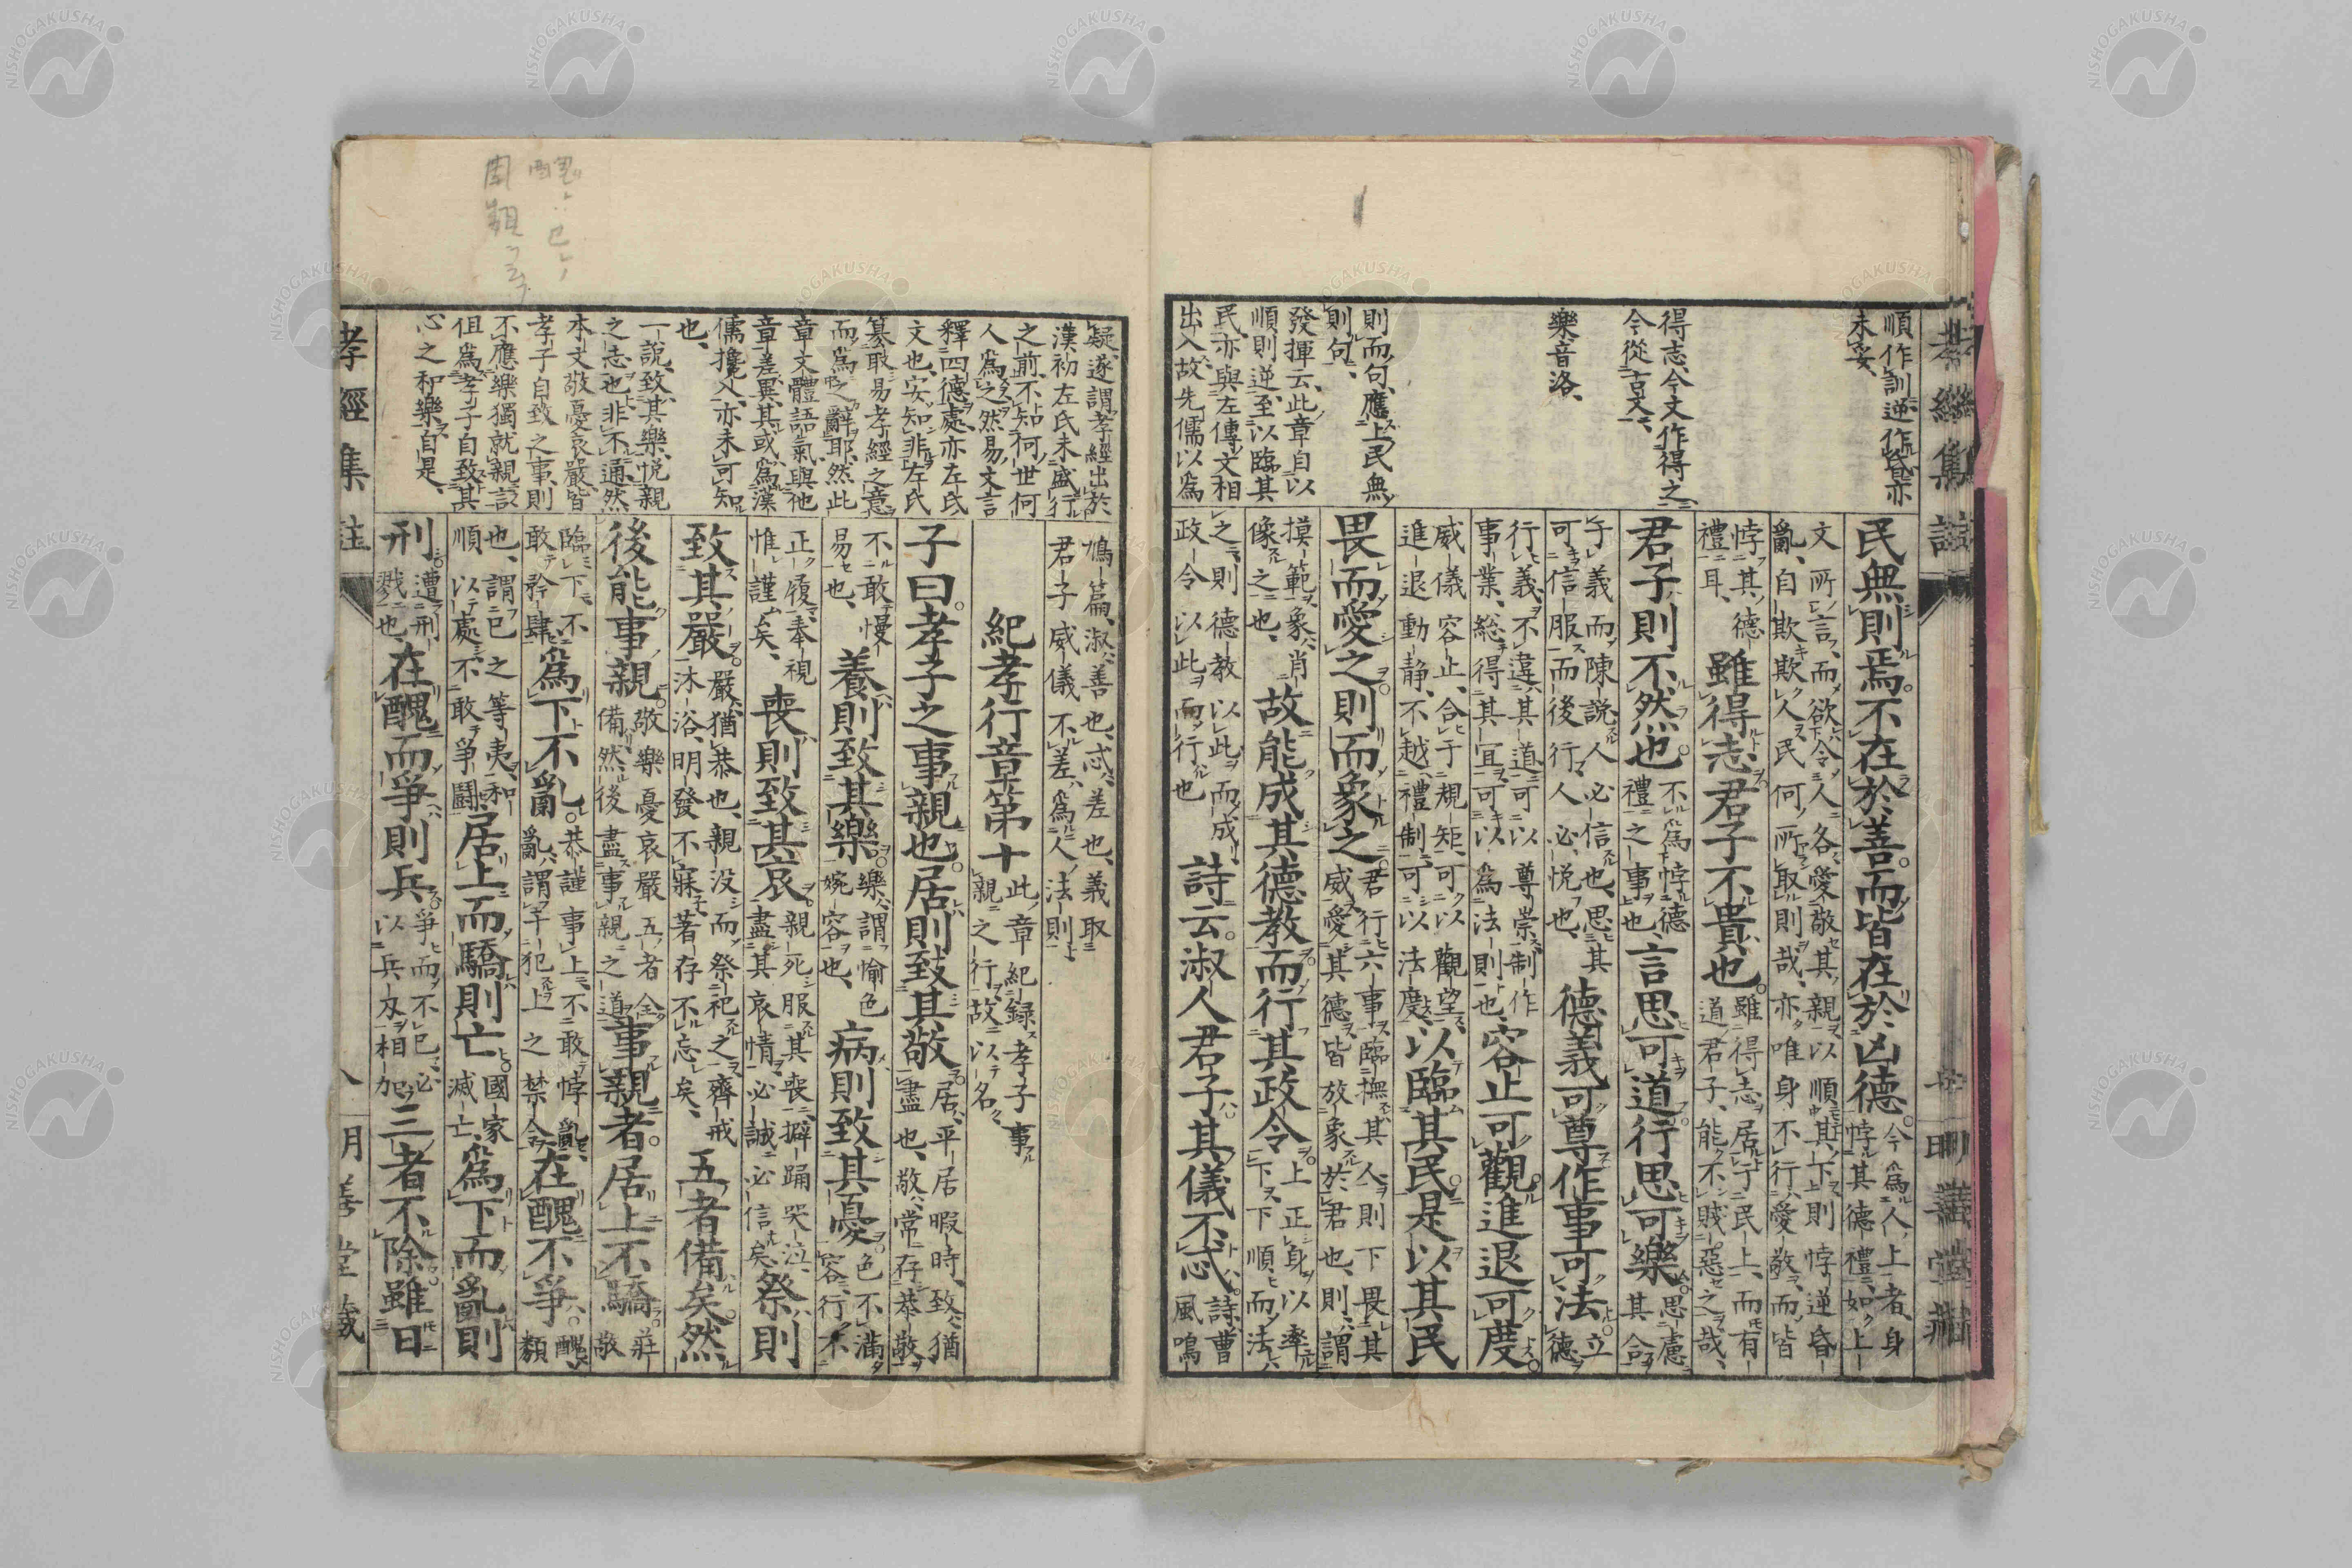 孝經集註
明善堂藏
順作訓、逆作昏、亦
未妥、
得志、今文作得之、
今從古文、
樂音洛、
則而句、應上民無
則句、
發揮云、此章自以
順則逆、至以臨其
民、亦與左傳文相
出入、故先儒以爲
民無則焉。不在於善。而皆在於凶德。
今爲人上者、身
悖其德禮、如上
文所言、而欲令人各愛敬其親、以順其下、則悖逆昏
亂、自欺欺人、民何所取則哉、亦唯身不行愛敬、而皆
悖其德
禮耳、
雖得志、君子不貴也。
雖得志居于民上、而有
道君子、能不賤惡之哉、
君子則不然也。
不爲悖德
禮之事也、
言思可道。行思可樂。
思慮
其合
于義而陳說、人必信也、思其
可信服而後行、人必悅也、
德義可尊。作事可法。
立
德
行義、不違其道、可以尊崇、制作
事業、総得其宜、可以爲法則也、
容止可觀。進退可度。
威儀容止、合于規矩、可以觀望、
進退動靜、不越禮制、可以法度、
以臨其民。是以其民
畏而愛之。則而象之。
君行六事、臨撫其人、則下畏其
威、愛其德、皆放象於君也、則、謂
摸範、象、肖
像之也、
故能成其德教。而行其政令。
上正身以率
下、下順而法
之、則德教以此而成、
政令以此而行也
詩云。淑人君子。其儀不忒。
詩、曹
風鳴
疑、遂謂孝經出於
漢初左氏未盛行
之前、不知何世何
人爲之、然易文言
釋四德處、亦左氏
文也、安知非左氏
纂取易孝經之意
而爲之辭耶、然此
章文體語氣、與他
章差異、其或爲漢
儒攙入、亦未可知
也、
一說、致其樂、悅親
之志也、非不通、然
本文敬憂哀嚴、皆
孝子自致之事、則
不應樂獨就親説
但爲孝子自致其
心之和樂自是、
鳩篇、淑、善也、忒、差也、義取
君子威儀不差、爲人法則、
紀孝行章第十
此章紀録孝子事
親之行、故以名、
子曰。孝子之事親也。居則致其敬。
居、平居暇時、致、猶
盡也、敬、常存恭敬
不敢慢
易也、
養則致其樂。
樂、謂愉色
婉容也、
病則致其憂。
色不滿
容、行不
正履、奉視
惟謹矣、
喪則致其哀。
親死服其喪、擗踊哭泣、
盡其哀情、必誠必信矣、
祭則
致其嚴。
嚴、猶恭也、親没而祭祀之、齊戒
沐浴、明發不寐、若存不忘矣、
五者備矣。然
後能事親。
敬樂憂哀嚴五者全
備、然後盡事親之道、
事親者。居上不驕。
莊
敬
臨下、不
敢矜肆、
爲下不亂。
恭謹事上、不敢悖亂、
亂、謂干犯上之禁令、
在醜不爭。
醜、
類
也、謂己之等夷、和
順以處、不敢爭鬬、
居上而驕則亡。
國家
滅亡、
爲下而亂則
刑。
遭刑
戮也、
在醜而爭則兵。
爭而不已、必
以兵刃相加、
三者不除。雖日
孝經集註
八
明善堂藏